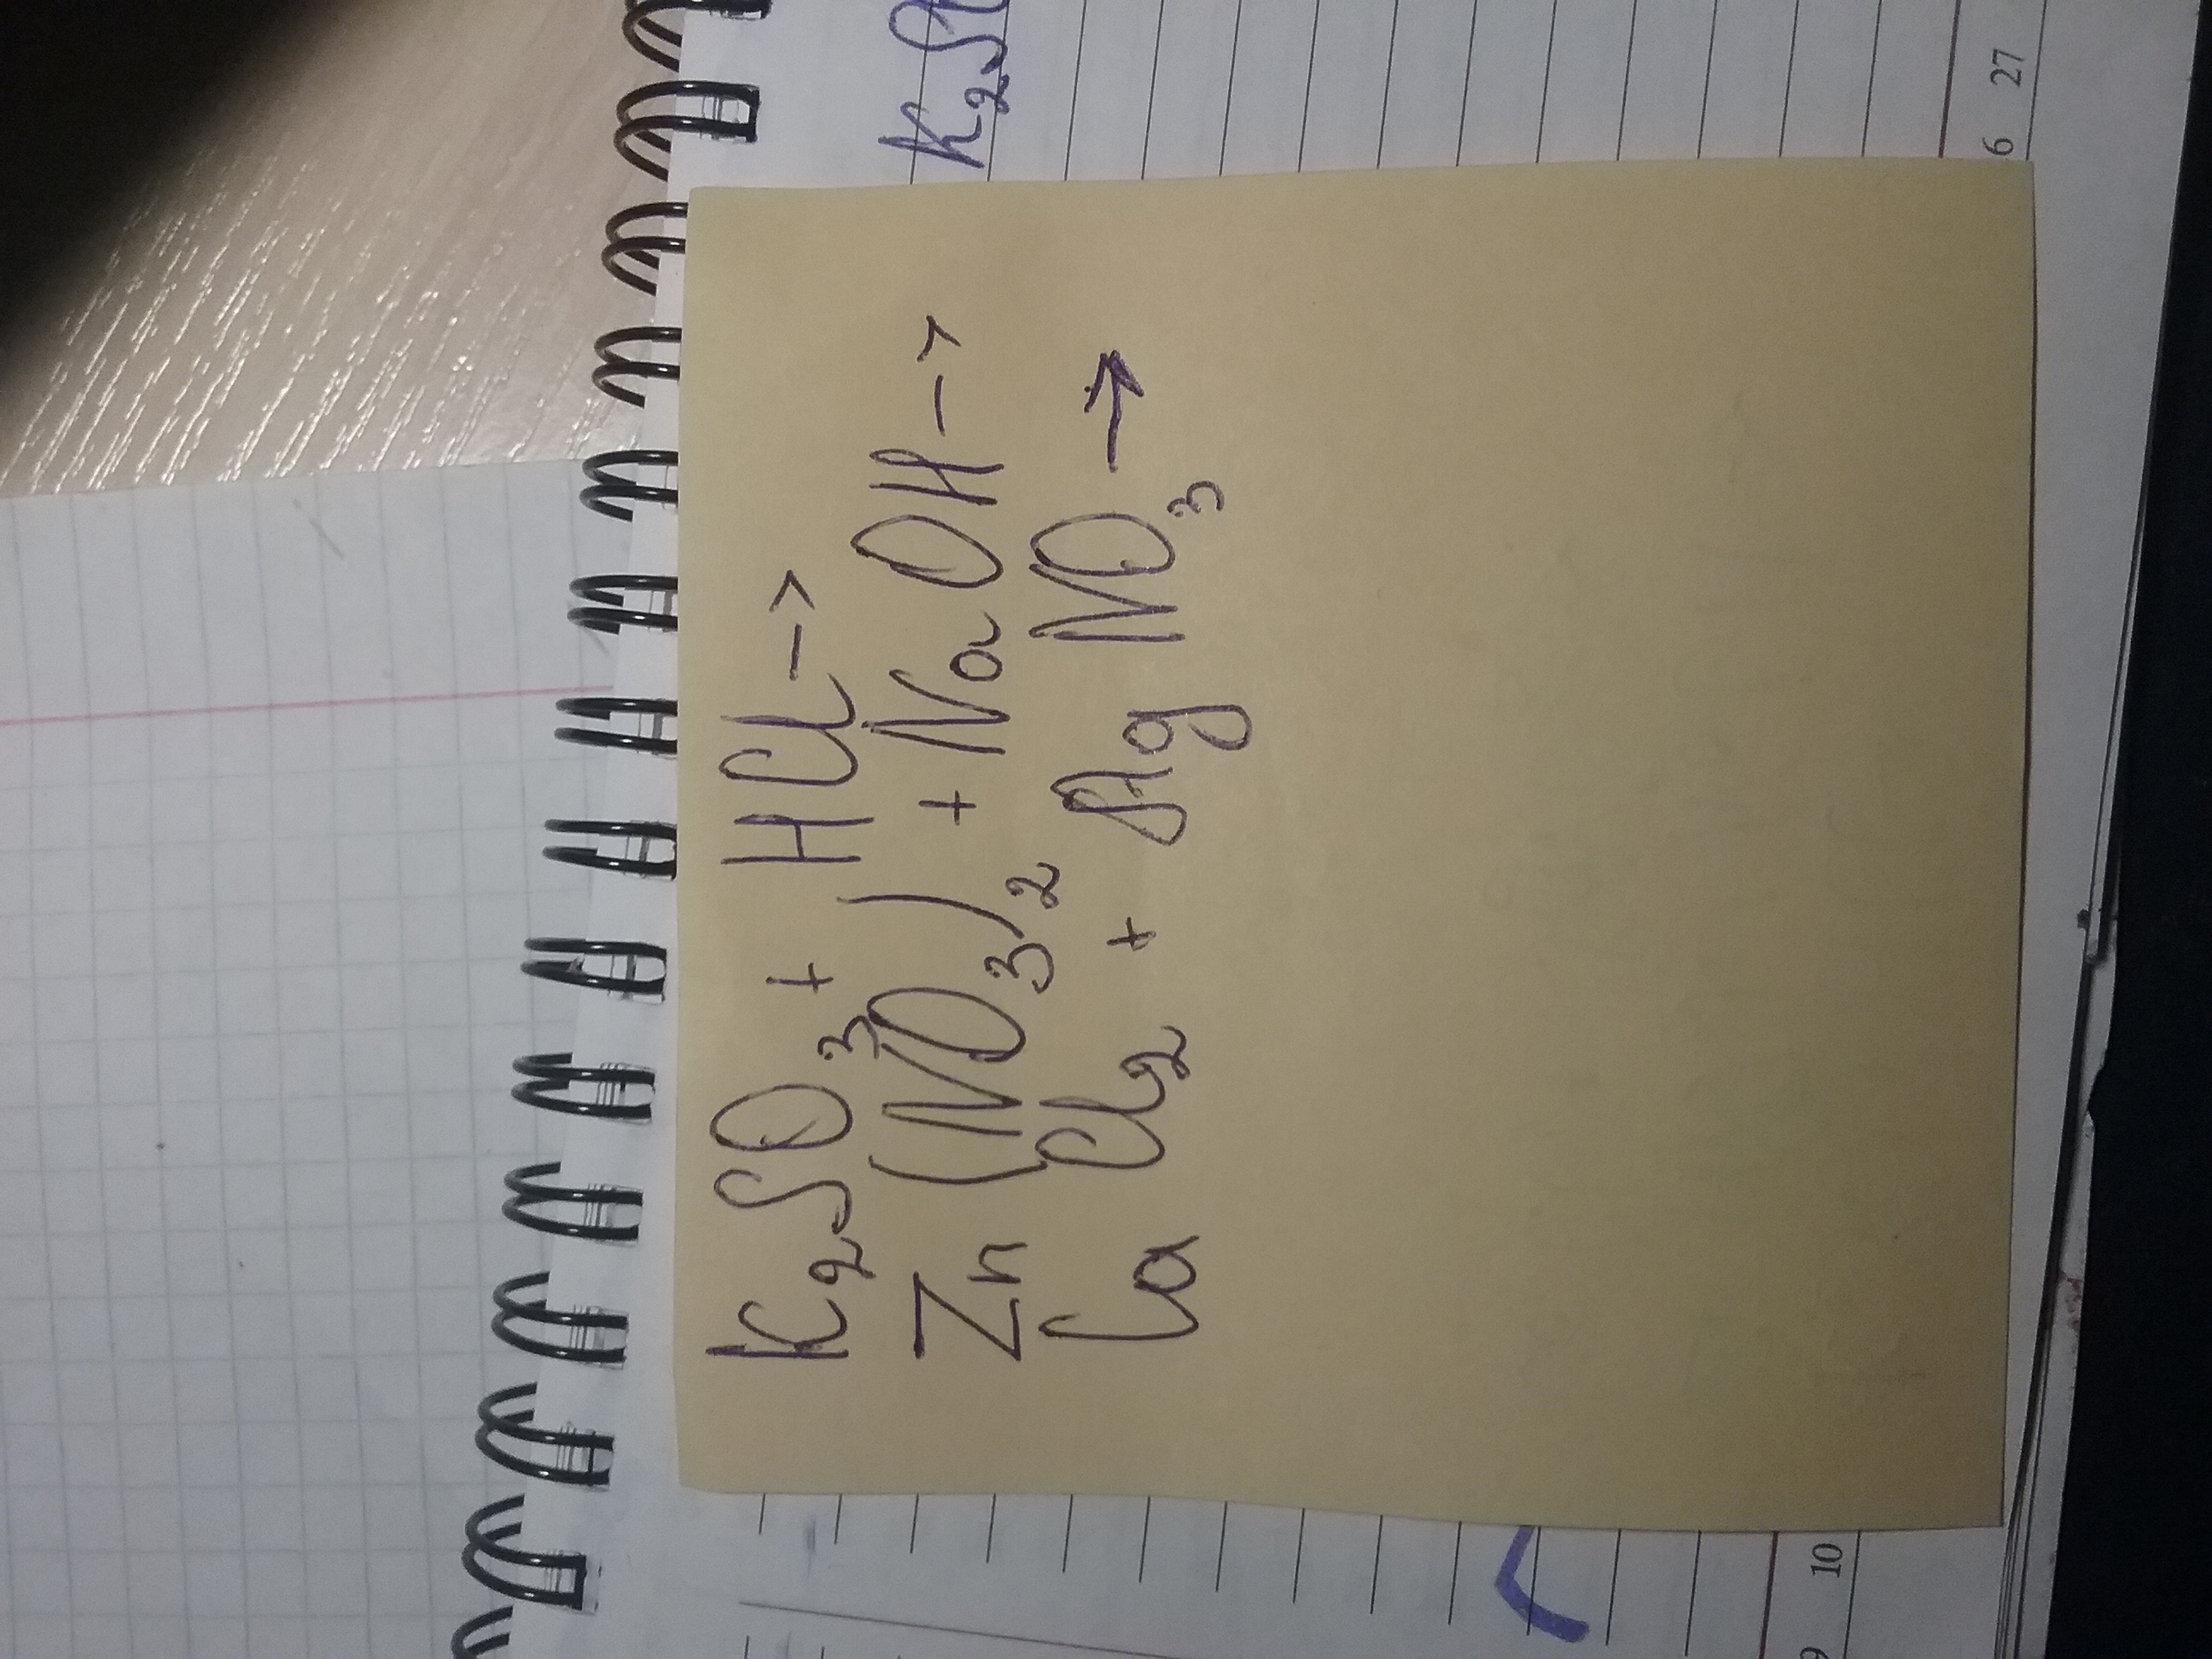 K₂SO₃ + HCl ->
Zn (NO₃)₂ + NaOH ->
Ca Cl₂ + Ag NO₃ →
6 27
10
9